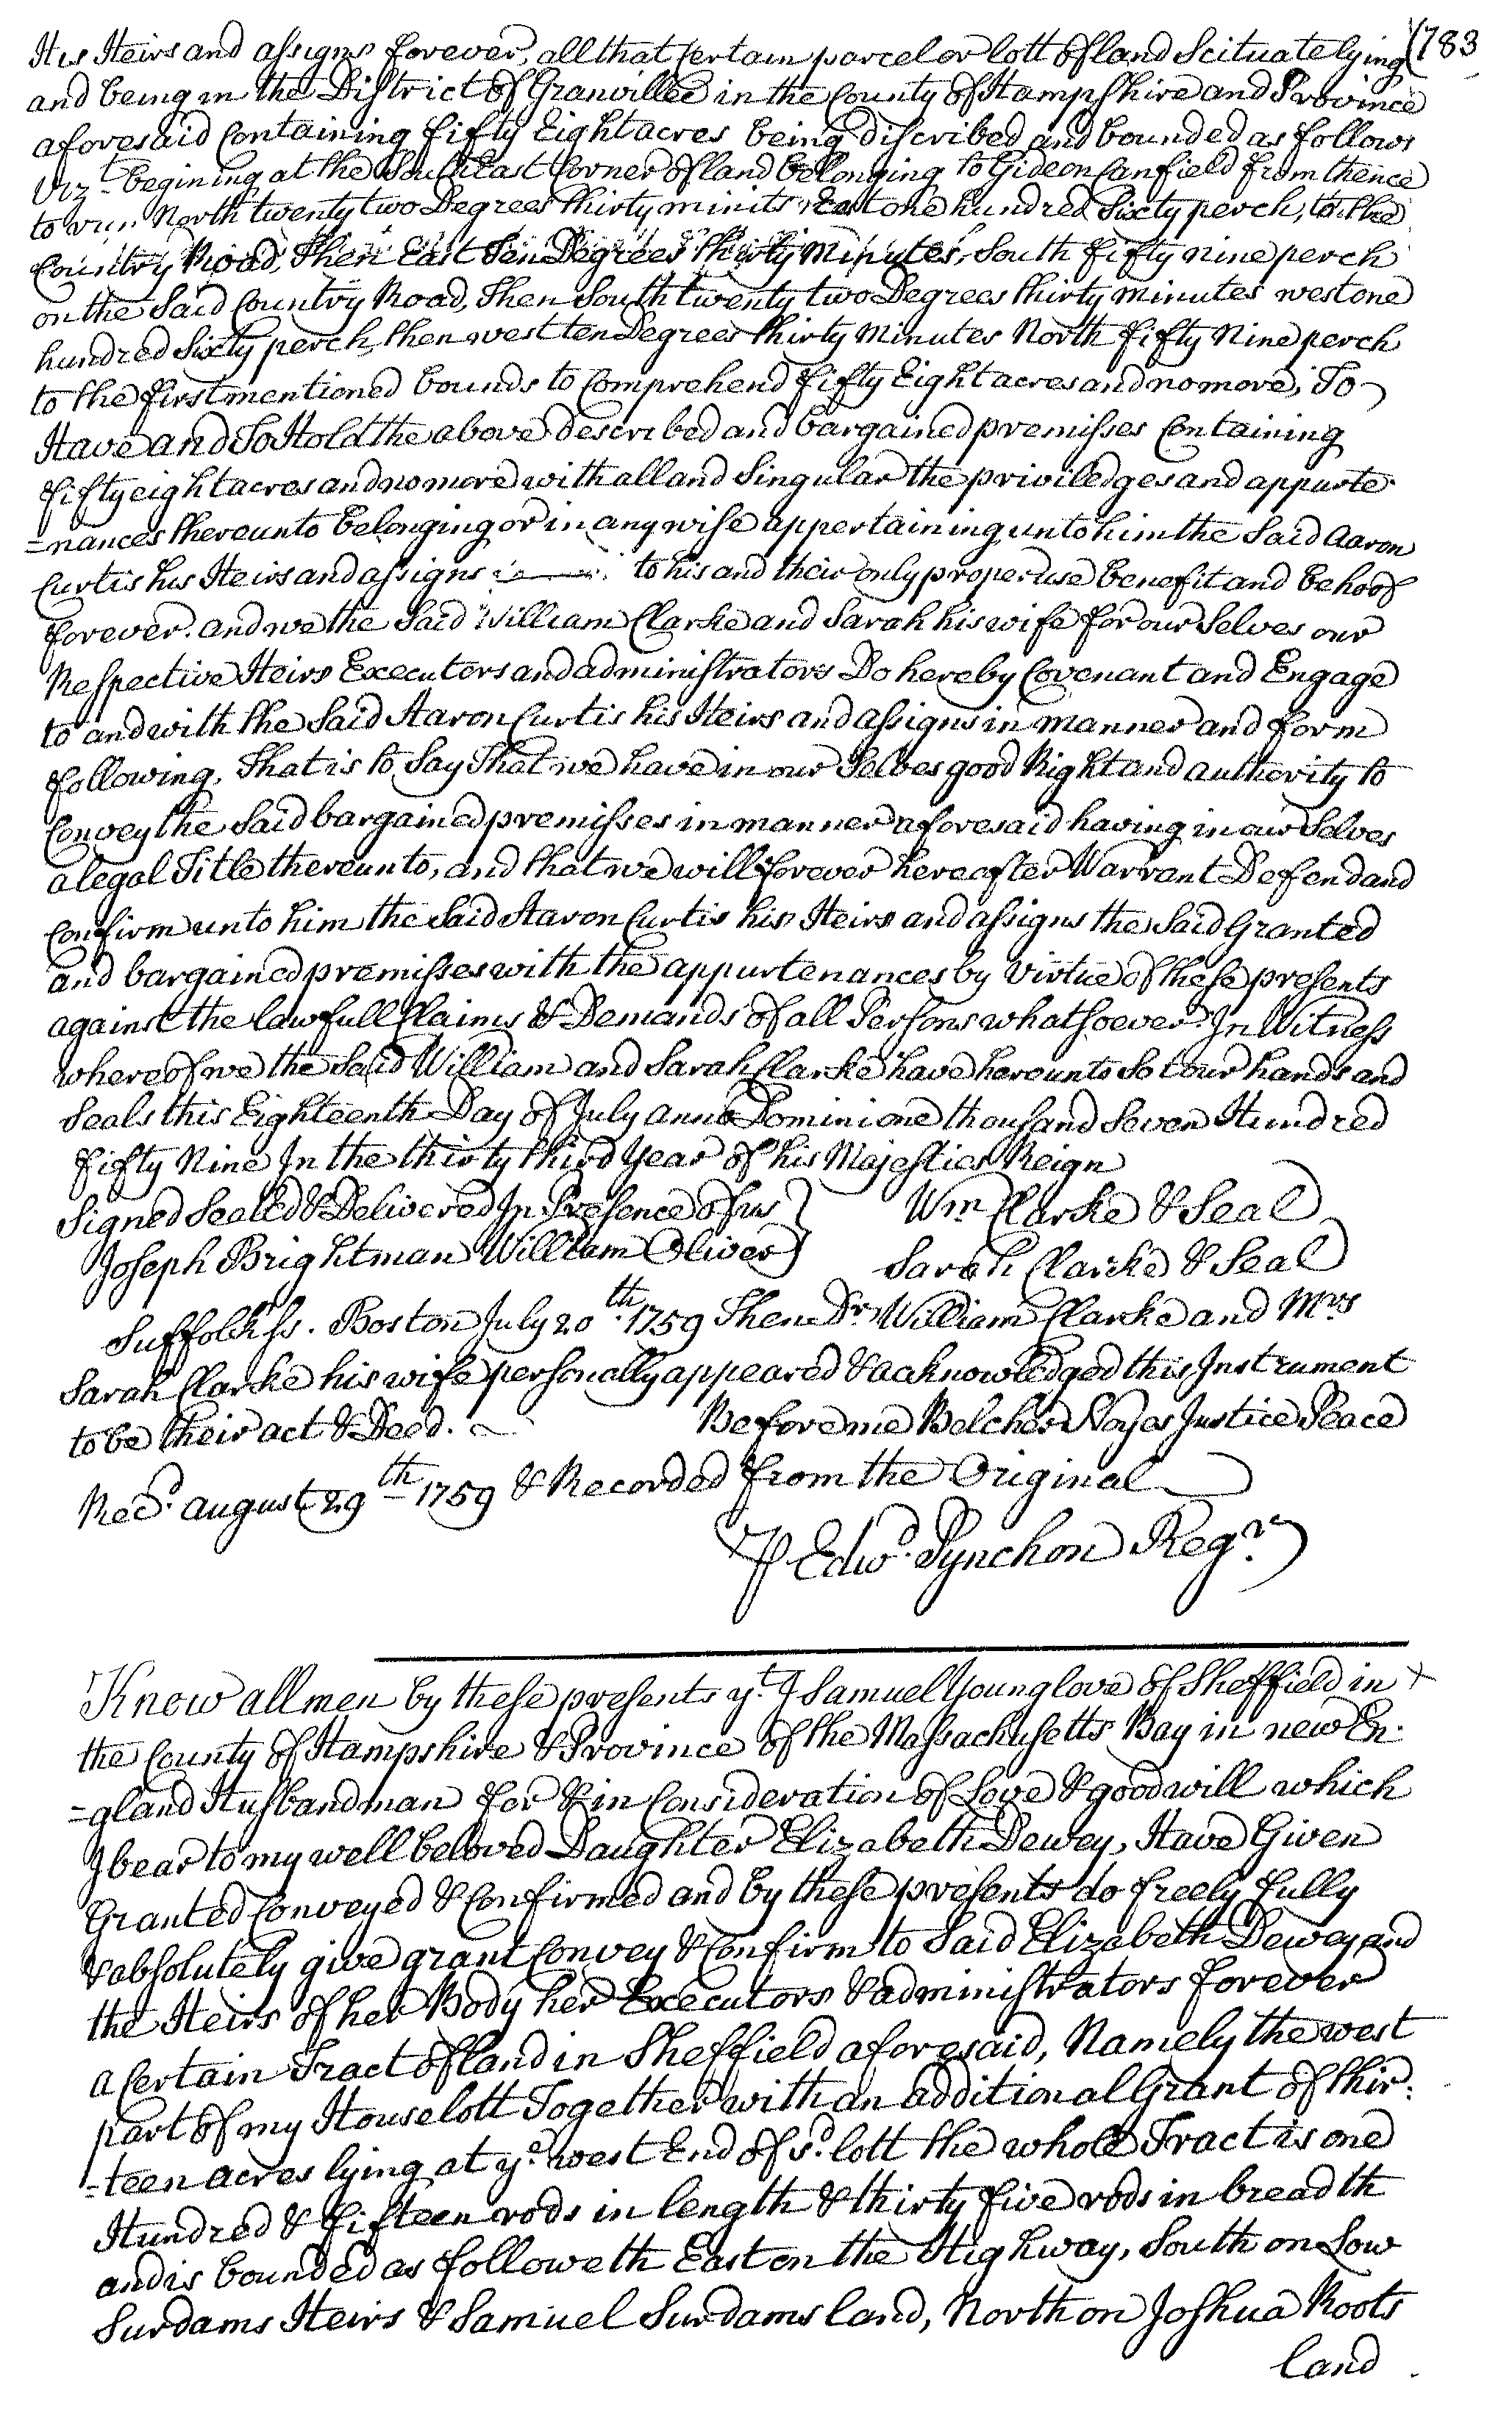 (783
His Heirs and assigns forever, all that Certain parcel or lott of land Scituate lying
and being in the District of Granville in the County of Hampshire and Province
aforesaid Containing fifty Eight acres being discribed and bounded as follows
Viz.t begining at the South East Corner of land belonging to Gideon Canfield from thence
to run North twenty two Degrees thirty minits East one hundred Sixty perch, to the
Country Road, Then East ten Degrees thirty Minutes, South fifty nine perch
on the Said Country Road, Then South twenty two Degrees thirty minutes west one
hundred Sixty perch, then west ten Degrees thirty Minutes North fifty Nine perch
to the first mentioned bounds to Comprehend fifty Eight acres and no more, To
Have and To Hold the above described and bargained premisses Containing
fifty eight acres and no more with all and Singular the priviledges and appurte
=nances thereunto belonging or in any wise appertaining unto him the Said Aaron
Curtis his Heirs and assigns to his and their only proper use benefit and behoof
forever. and we the Said William Clarke and Sarah his wife for our Selves our
Respective Heirs Executors and administrators Do hereby Covenant and Engage
to and with the Said Aaron Curtis his Heirs and assigns in manner and form
following, That is to Say That we have in our Selves good Right and authority to
Convey the Said bargained premisses in manner aforesaid having in our Selves
a legal Title thereunto, and that we will forever hereafter Warrant Defend and
Confirm unto him the Said Aaron Curtis his Heirs and assigns the Said Granted
and bargained premisses with the appurtenances by Virtue of these presents
against the lawfull Claims & Demands of all Persons whatsoever. In Witness
whereof we the Said William and Sarah Clarke have hereunto Set our hands and
Seals this Eighteenth Day of July anno Domini one thousand Seven Hundred
fifty Nine In the thirty third Year of his Majesties Reign
Signed Sealed & Delivered In Presence of us } Wm Clarke & Seal
Joseph Brightman William Oliver } Sarah Clarke & Seal
Suffolk ss. Boston July 20th. 1759 Then Dr. William Clarke and Mrs
Sarah Clarke his wife personally appeared & acknowledged this Instrument
to be their act & Deed. Before me Belcher Noyes Justice Peace
Recd. august 29th 1759 & Recorded from the Original
P Edwd. Pynchon Regr.
Know all men by these presents yt. I Samuel Younglove of Sheffield in
the County of Hampshire & Province of the Massachusetts Bay in new En-
=gland Husbandman for & in Consideration of Love & good will which
I bear to my well beloved Daughter Elizabeth Dewey, Have Given
Granted Conveyed & Confirmed and by these presents do freely fully
& absolutely give grant Convey & Confirm to Said Elizabeth Dewey and
the Heirs of her Body her Executors & administrators forever
a Certain Tract of land in Sheffield aforesaid, Namely the west
part of my House lott Together with an additional Grant of thir-
=teen acres lying at ye. west End of sd. lott the whole Tract is one
Hundred & fifteen rods in length & thirty five rods in breadth
and is bounded as followeth East on the Highway, South on Low
Surdams Heirs & Samuel Surdams land, North on Joshua Roots
land